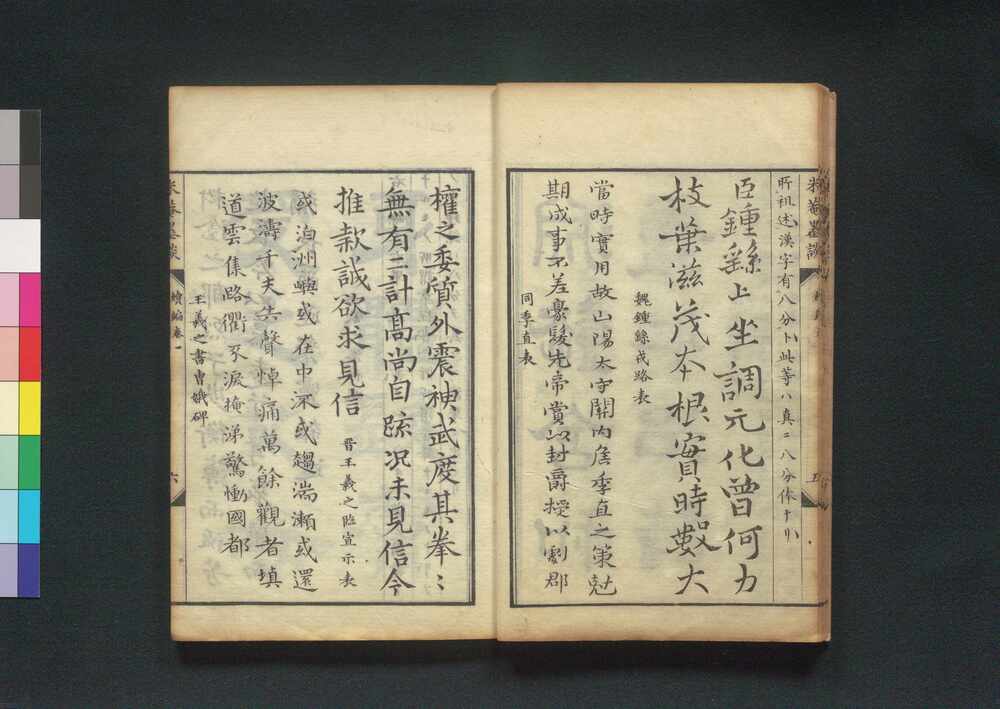 所祖述漢字有八分ト此等ハ真ニ八分ノ体ナリ
臣鍾繇上坐調元化曾何力
枝葉滋茂本根實時數大
魏鍾繇戎路表
當時實用故山陽太守關内侯季直之策尅
期成事不差豪髮先帝賞以封爵授以劇郡
同季直表
權之委質外震神武度其拳〻
無有二計高尚自踈况未見信今
推款誠欲求見信
晉王羲之臨宣示表
或泊洲嶼或在中流或趨湍瀬或還
波濤千夫失聲悼痛萬餘觀者填
道雲集路衢泣淚掩涕驚慟國都
王羲之書曹娥碑
米菴墨談
續編卷一
六